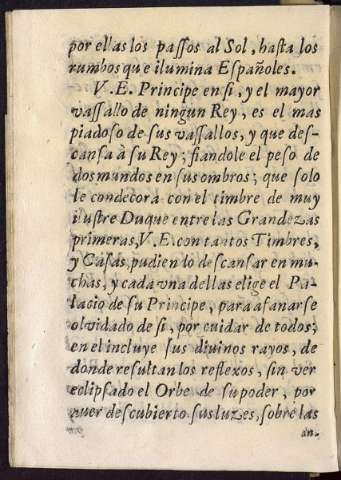 por ellas los paſſos al Sol, haſta los
rumbos que ilumina Eſpañoles.
V. E. Principe en ſi, y el mayor
vaſſallo de ningun Rey, es el mas
piadoſo de sus vaſſallos, y que deſ-
canſa à ſu Rey; fiandole el peſo de
dos mundos en ſus ombros; que ſolo
le condecora con el timbre de muy
iluſtre Duque entre las Grandezas
primeras, V. E. con tantos Timbres,
y Caſas, pudiendo deſcanſar en mu-
chas, y cada vna dellas elige el Pa-
lacio de ſu Principe, para afanarſe
olvidado de ſi, por cuidar de todos;
en el incluye ſus diuinos rayos, de
donde reſultan los reflexos, ſin ver
eclipſado el Orbe de ſu poder, por
auer deſcubierto ſus luzes, ſobre las
an-